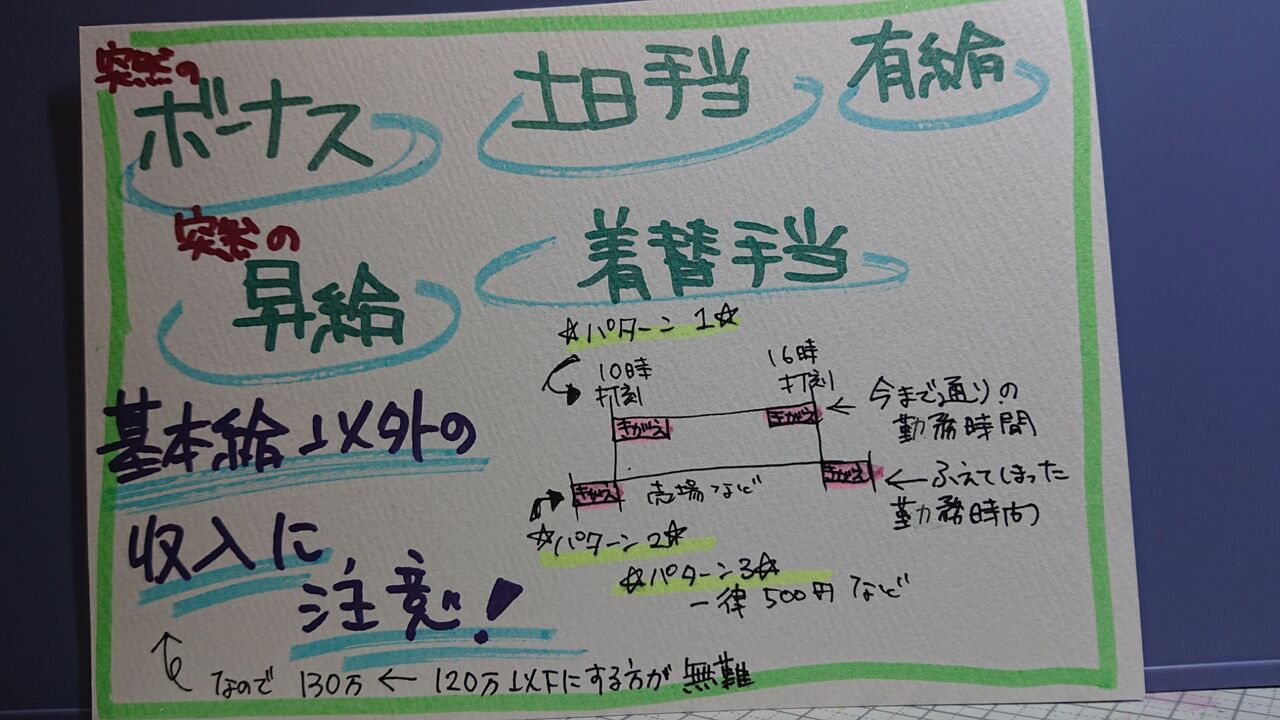 突然の
ボーナス
土日手当
有給
突然の
昇給
着替手当
☆パターン1☆
10時
打刻
16時
打刻
きがえ
きがえ
← 今まで通りの
勤務時間
きがえ
売場など
きがえ
← ふえてしまった
勤務時間
☆パターン2☆
☆パターン3☆
一律 500円 など
基本給以外の
収入に
注意!
なので 130万 ← 120万以下にする方が 無難